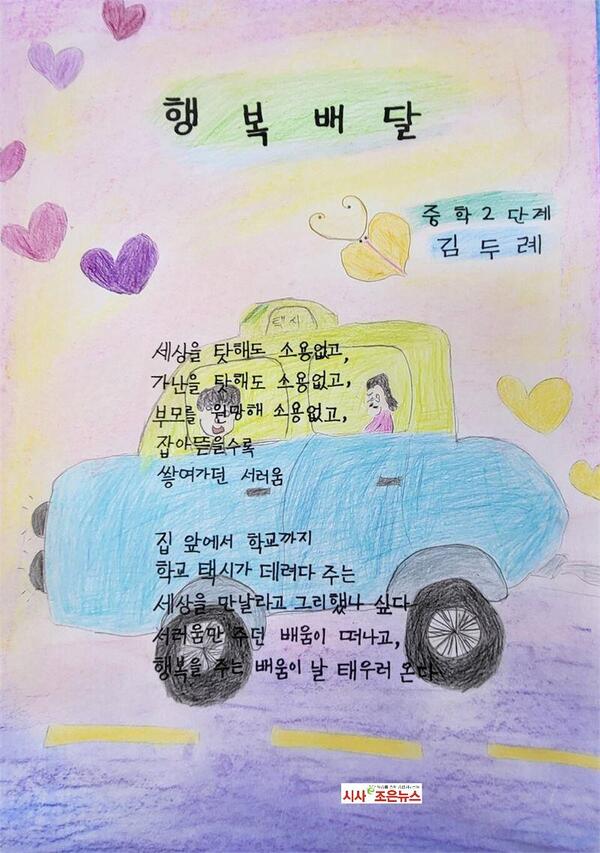 행복배달
중학2단계
김두례
택시
세상을 탓해도 소용없고,
가난을 탓해도 소용없고,
부모를 원망해 소용없고,
잡아뜯을수록
쌓여가던 서러움
집 앞에서 학교까지
학교 택시가 데려다 주는
세상을 만날라고 그리했나 싶다
서러움만 주던 배움이 떠나고,
행복을 주는 배움이 날 태우러 온다
시사 조은뉴스